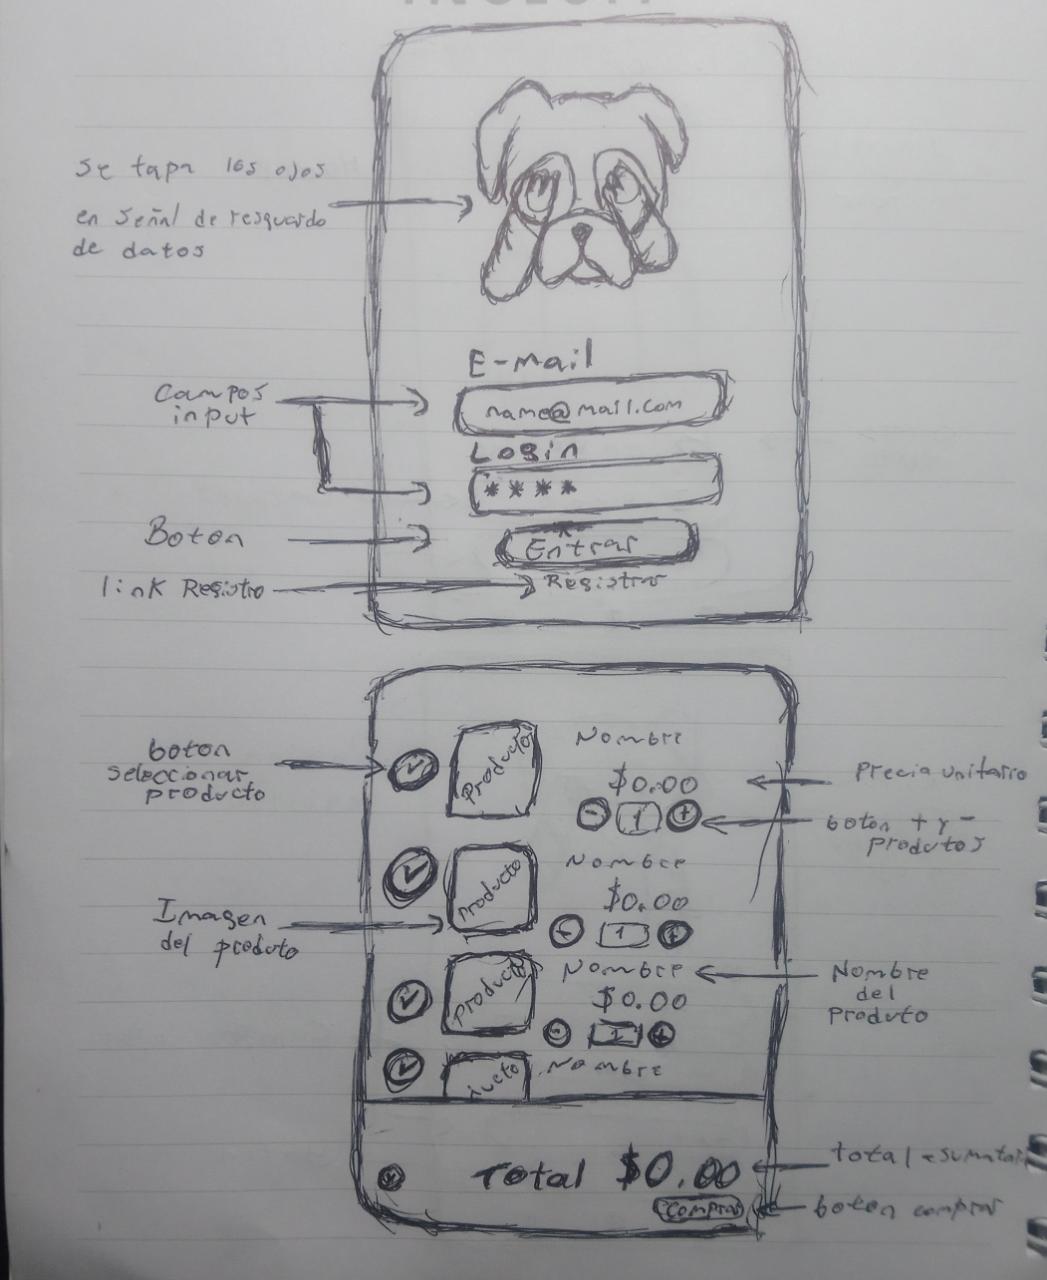 Se tapa los ojos
en señal de resguardo
de datos
E-mail
Campos
input
name@mail.com
Login
****
Boton
Entrar
link Registro
Registrar
boton
seleccionar
producto
Producto
Nombre
$0.00
Precia unitario
- 1 +
boton + y -
produtos
Nombre
Producto
$0.00
Imagen
del produto
- 1 +
Producto
Nombre
Nombre
del
produto
$0.00
- 1 +
ucto
Nombre
Total $0.00
total
Comprar
boton comprar